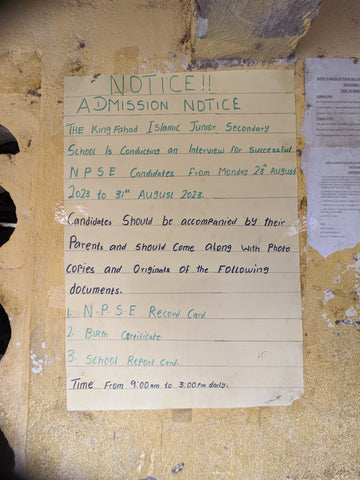 NOTICE!!
ADMISSION NOTICE
THE King Fahad Islamic Junior Secondary
School Is Conducting an Interview for Successful
NPSE Candidates From Monday 28th August
2023 to 31st August 2023.
Candidates Should be accompanied by their
Parents and should Come along with Photo
Copies and Originals of the Following
documents.
1. N.P.S.E Record Card
2. Birth Certificate
3. School Report Card.
Time From 9:00am to 3:00pm daily.